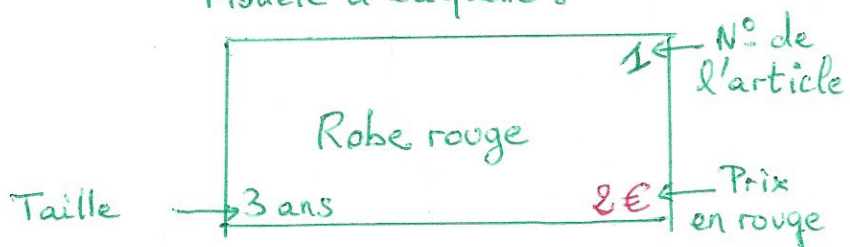 1 ← N° de
l'article
Robe rouge
Taille → 3 ans
2 € ← Prix
en rouge